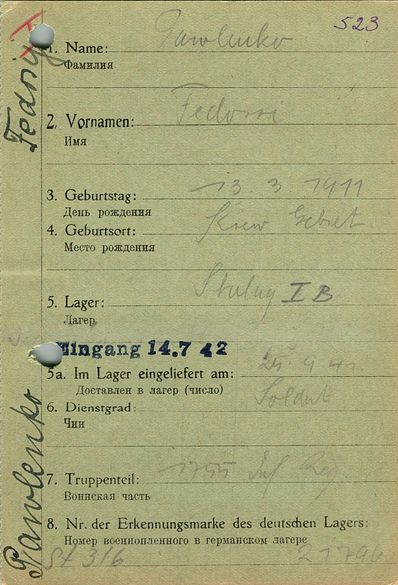 523
1. Name: Pawlenko
Фамилия
2. Vornamen: Fedossi
Имя
3. Geburtstag: 13. 3 1911
День рождения
4. Geburtsort: Kiew Gebiet
Место рождения
5. Lager: Stalag I B
Лагер
Eingang 14.7 42
5a. Im Lager eingeliefert am: 25. 9 41.
Доставлен в лагер (число)
6. Dienstgrad: Soldat
Чин
7. Truppenteil: 1755 Inf Reg.
Воинская часть
8. Nr. der Erkennungsmarke des deutschen Lagers:
Номер военнопленного в германском лагере
St 316 21796
Pawlenko